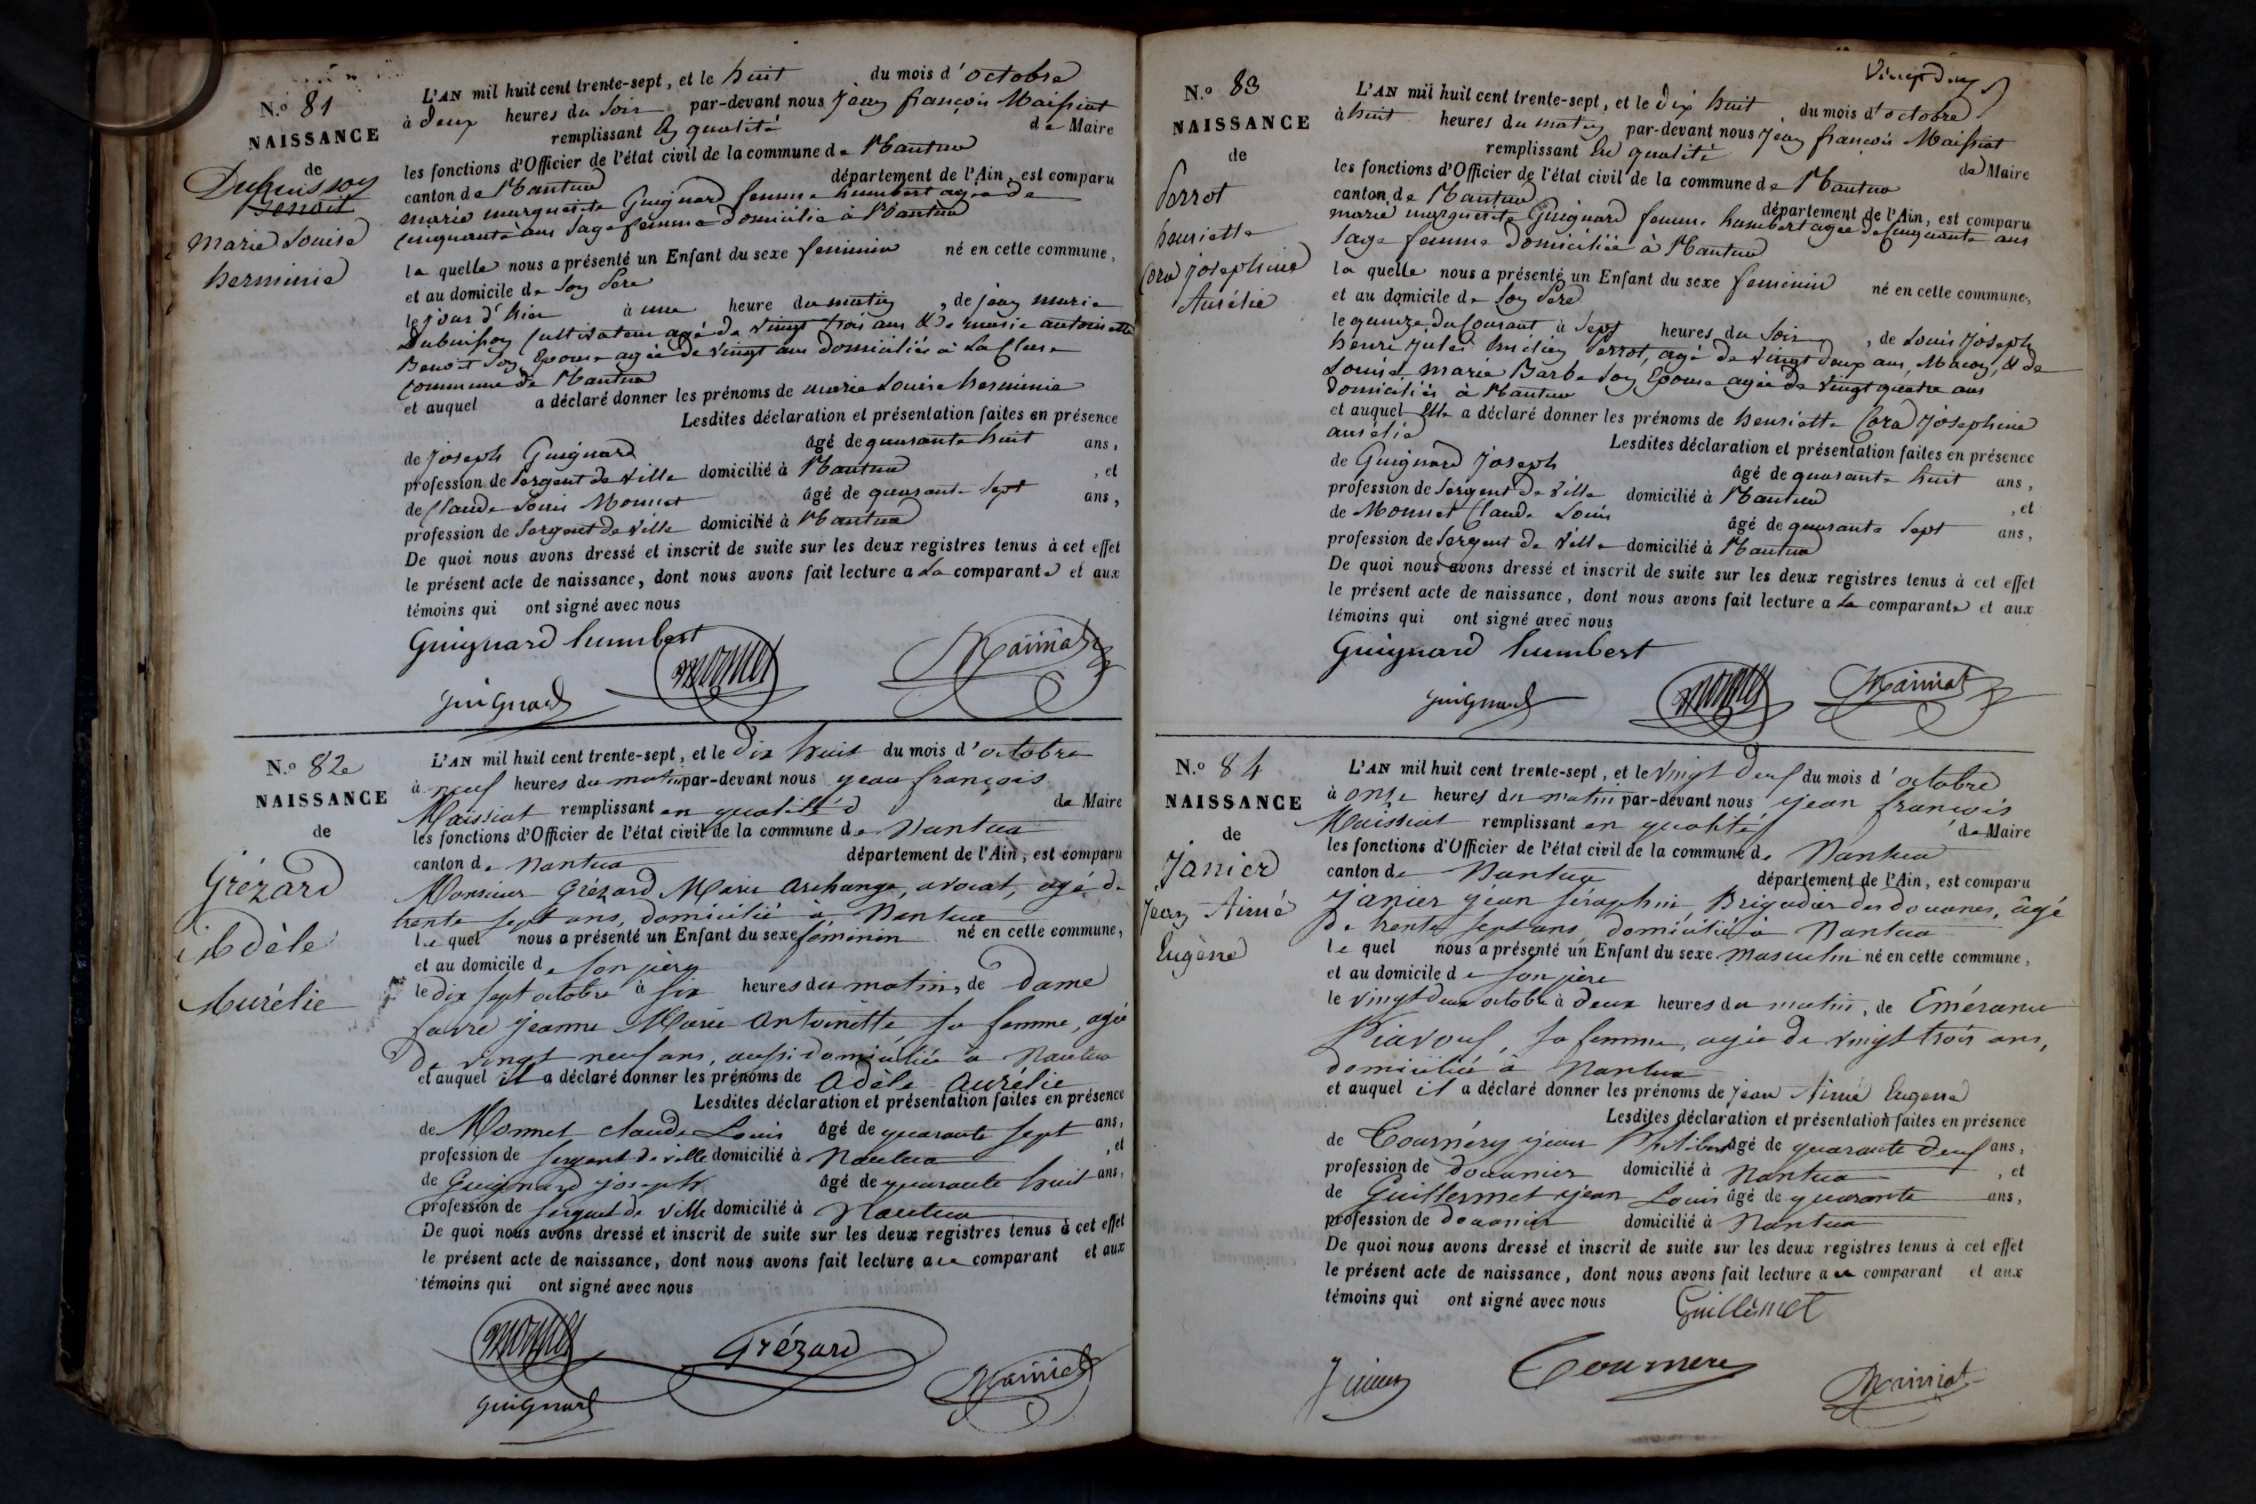 N.º 81
NAISSANCE
de
Dubuisson
Benoit
marie Louise
herminie
L'AN mil huit cent trente-sept, et le huit du mois d'octobre
à deux heures du soir par-devant nous jean françois Maissiat
remplissant en qualité de Maire
les fonctions d'Officier de l'état civil de la commune de Nantua
canton de Nantua département de l'Ain, est comparu
marie marguerite Guignard femme humbert agée de
cinquante ans sage femme domicilié à Nantua
la quelle nous a présenté un Enfant du sexe feminin né en cette commune,
et au domicile de son Pere
le jour d'hier à une heure du matin, de jean marie
Dubuisson Cultivateur agé de vingt trois ans & de marie antoinette
Benoit son Epouse agée de vingt ans domiciliés à La Cluse
commune de Nantua
et auquel a déclaré donner les prénoms de marie Louise herminie
Lesdites déclaration et présentation faites en présence
de joseph Guignard âgé de quarante huit ans,
profession de sergent de ville domicilié à Nantua, et
de Claude Louis Monnet âgé de quarante sept ans,
profession de sergent de ville domicilié à Nantua
De quoi nous avons dressé et inscrit de suite sur les deux registres tenus à cet effet
le présent acte de naissance, dont nous avons fait lecture a La comparante et aux
témoins qui ont signé avec nous
Guignard humbert
monnet
Maissiat
Guignard
N.º 82
NAISSANCE
de
Grézard
Adèle
Aurélie
L'AN mil huit cent trente-sept, et le dix huit du mois d'octobre
à neuf heures du matin par-devant nous jean françois
Maissiat remplissant en qualité de Maire
les fonctions d'Officier de l'état civil de la commune de Nantua
canton de Nantua département de l'Ain, est comparu
Monsieur Grézard Marie Archange, avocat, agé de
trente sept ans, domicilié à Nantua
le quel nous a présenté un Enfant du sexe féminin né en cette commune,
et au domicile de son père
le dix sept octobre à six heures du matin, de dame
favre jeanne Marie Antoinette sa femme, agée
de vingt neuf ans, aussi domiciliée à Nantua
et auquel il a déclaré donner les prénoms de Adèle Aurélie
Lesdites déclaration et présentation faites en présence
de Monnet claude Louis âgé de quarante sept ans,
profession de sergent de ville domicilié à Nantua, et
de Guignard joseph âgé de quarante huit ans,
profession de sergent de ville domicilié à Nantua
De quoi nous avons dressé et inscrit de suite sur les deux registres tenus à cet effet
le présent acte de naissance, dont nous avons fait lecture au comparant et aux
témoins qui ont signé avec nous
monnet
Grézard
Maissiat
Guignard
Vingt deux
N.º 83
NAISSANCE
de
Perrot
henriette
Cora josephine
Aurélie
L'AN mil huit cent trente-sept, et le dix huit du mois d'octobre
à huit heures du matin par-devant nous jean françois Maissiat
remplissant en qualité de Maire
les fonctions d'Officier de l'état civil de la commune de Nantua
canton de Nantua département de l'Ain, est comparu
marie marguerite Guignard femme humbert agée de cinquante ans
sage femme domiciliée à Nantua
la quelle nous a présenté un Enfant du sexe feminin né en cette commune,
et au domicile de son Pere
le quinze du Courant à sept heures du soir, de Louis joseph
henri jules Emilien Perrot, agé de vingt deux ans, Macon, & de
Louise marie Barbe son Epouse agée de vingt quatre ans
domiciliés à Nantua
et auquel elle a déclaré donner les prénoms de henriette Cora josephine
aurélie
Lesdites déclaration et présentation faites en présence
de Guignard joseph âgé de quarante huit ans,
profession de sergent de ville domicilié à Nantua, et
de Monnet Claude Louis âgé de quarante sept ans,
profession de sergent de ville domicilié à Nantua
De quoi nous avons dressé et inscrit de suite sur les deux registres tenus à cet effet
le présent acte de naissance, dont nous avons fait lecture a la comparante et aux
témoins qui ont signé avec nous
Guignard humbert
Guignard
monnet
Maissiat
N.º 84
NAISSANCE
de
Janier
jean Aimé
Eugène
L'AN mil huit cent trente-sept, et le vingt deux du mois d'octobre
à onze heures du matin par-devant nous jean françois
Maissiat remplissant en qualité de Maire
les fonctions d'Officier de l'état civil de la commune de Nantua
canton de Nantua département de l'Ain, est comparu
Janier jean séraphin Brigadier des douanes, âgé
de trente sept ans, domicilié à Nantua
le quel nous a présenté un Enfant du sexe masculin né en cette commune,
et au domicile de son père
le vingt deux octobre à deux heures du matin, de Emérance
sa femme, agée de vingt trois ans,
domiciliée à Nantua
et auquel il a déclaré donner les prénoms de jean Aimé Eugene
Lesdites déclaration et présentation faites en présence
de Tournéry jean Philibert âgé de quarante deux ans,
profession de douanier domicilié à Nantua, et
de Guillermet jean Louis âgé de quarante ans,
profession de douanier domicilié à Nantua
De quoi nous avons dressé et inscrit de suite sur les deux registres tenus à cet effet
le présent acte de naissance, dont nous avons fait lecture au comparant et aux
témoins qui ont signé avec nous
Guillermet
Janier
Tournery
Maissiat